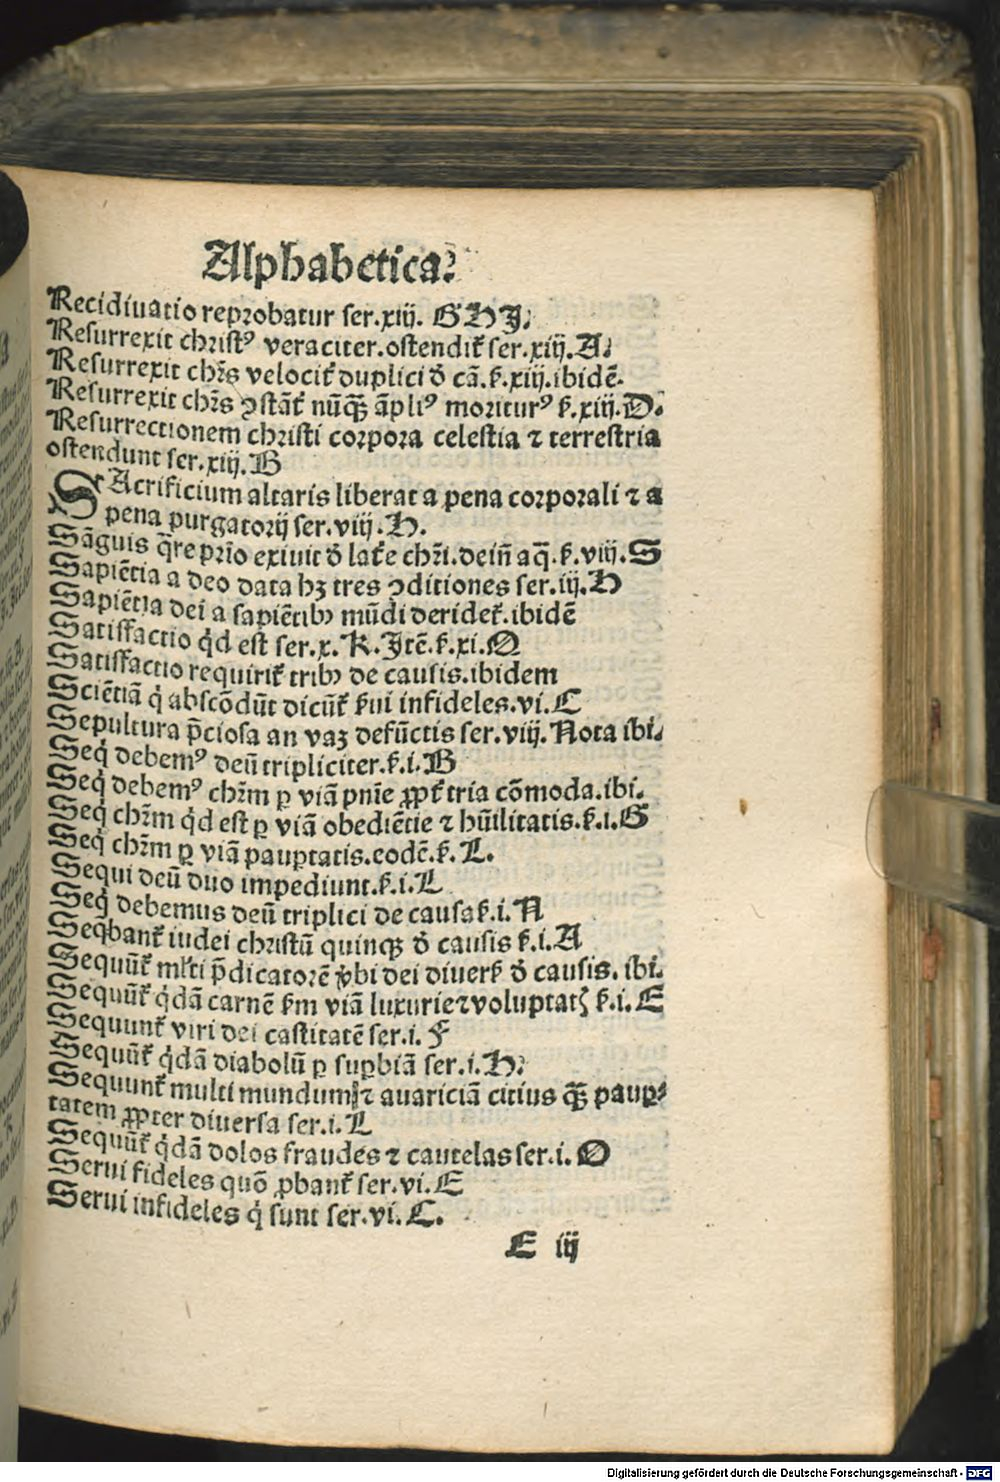 Alphabetica.
Recidiuatio reprobatur ser.xiij. G H J.
Resurrexit christꝰ veraciter.ostendit᷑ ser.xiij.A.
Resurrexit chr̄s velocit᷑ duplici ð cā.ẜ.xiij.ibidē.
Resurrexit chr̄s ↄstāt᷑ nūqꝫ āpliꝰ moriturꝰ ẜ.xiij.D.
Resurrectionem christi corpora celestia ⁊ terrestria
ostendunt ser.xiij.B
SAcrificium altaris liberat a pena corporali ⁊ a
pena purgatorij ser.viij.H.
Sāguis q̄re prīo exiuit ð lat᷑e chr̄i.dein̄ aq̄.ẜ.viij.S
Sapiētia a deo data hꝫ tres ↄditiones ser.iij.H
Sapiētia dei a sapiētibꝰ mūdi deridet᷑.ibidē
Satisfactio qͥd est ser.x.K.Jtē.ẜ.xi.Q
Satisfactio requirit᷑ tribꝰ de causis.ibidem
Sciētiā qͥ abscōdūt dicūt᷑ ẜui infideles.vi.C
Sepultura p̄ciosa an vaꝫ defūctis ser.viij.Nota ibi.
Seqͥ debemꝰ deū tripliciter.ẜ.i.B
Seqͥ debemꝰ chr̄m ꝑ viā pnīe ꝓpt᷑ tria cōmoda.ibi.
Seqͥ chr̄m qͥd est ꝑ viā obediētie ⁊ hūilitatis.ẜ.i.G
Seqͥ chr̄m ꝑ viā pauꝑtatis.eodē.ẜ.L.
Sequi deū duo impediunt.ẜ.i.L
Seqͥ debemus deū triplici de causa ẜ.i.N
Seqbant᷑ iudei christū quinqꝫ ð causis ẜ.i.A
Sequūt᷑ ml̄ti p̄dicatorē v̓bi dei diuerẜ ð causis. ibi.
Sequūt᷑ qͥdā carnē ẜm viā luxurie⁊voluptatꝭ ẜ.i.E
Sequunt᷑ viri dei castitatē ser.i.F
Sequūt᷑ qͥdā diabolū ꝑ suꝑbiā ser.i.H.
Sequunt᷑ multi mundum ⁊ auariciā citius qꝫ̄ pauꝑ⸗
tatem ꝓpter diuersa ser.i.L
Sequūt᷑ qͥdā dolos fraudes ⁊ cautelas ser.i.O
Serui fideles quō ꝓbant᷑ ser.vi.E
Serui infideles qͥ sunt ser.vi.C.
E iij
Digitalisierung gefördert durch die Deutsche Forschungsgemeinschaft - DFG